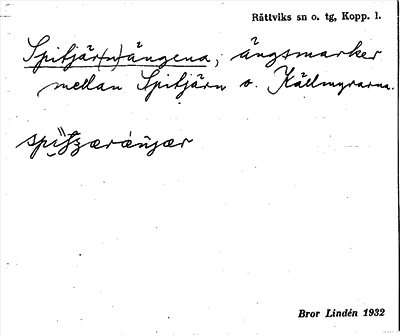 Rättviks sn o. tg, Kopp. l.
Spitjär(n)ängena, ängsmarker
mellan Spitjärn o. Källmyrarna.
Bror Lindén 1932